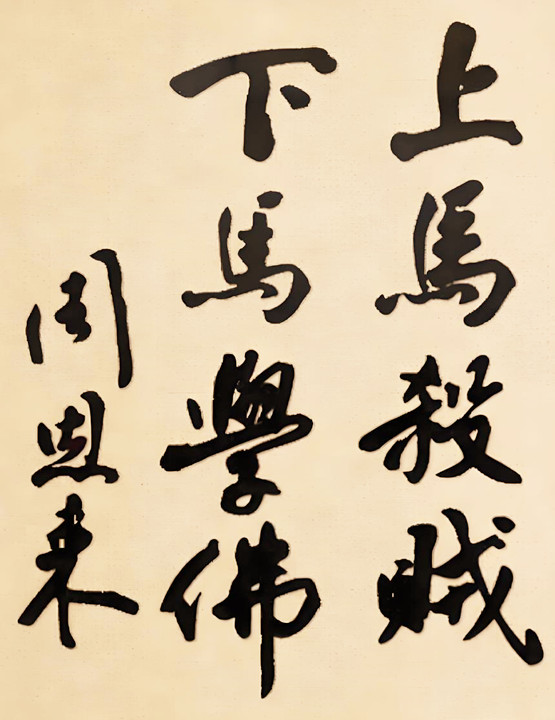 上馬殺賊
下馬學佛
周恩来